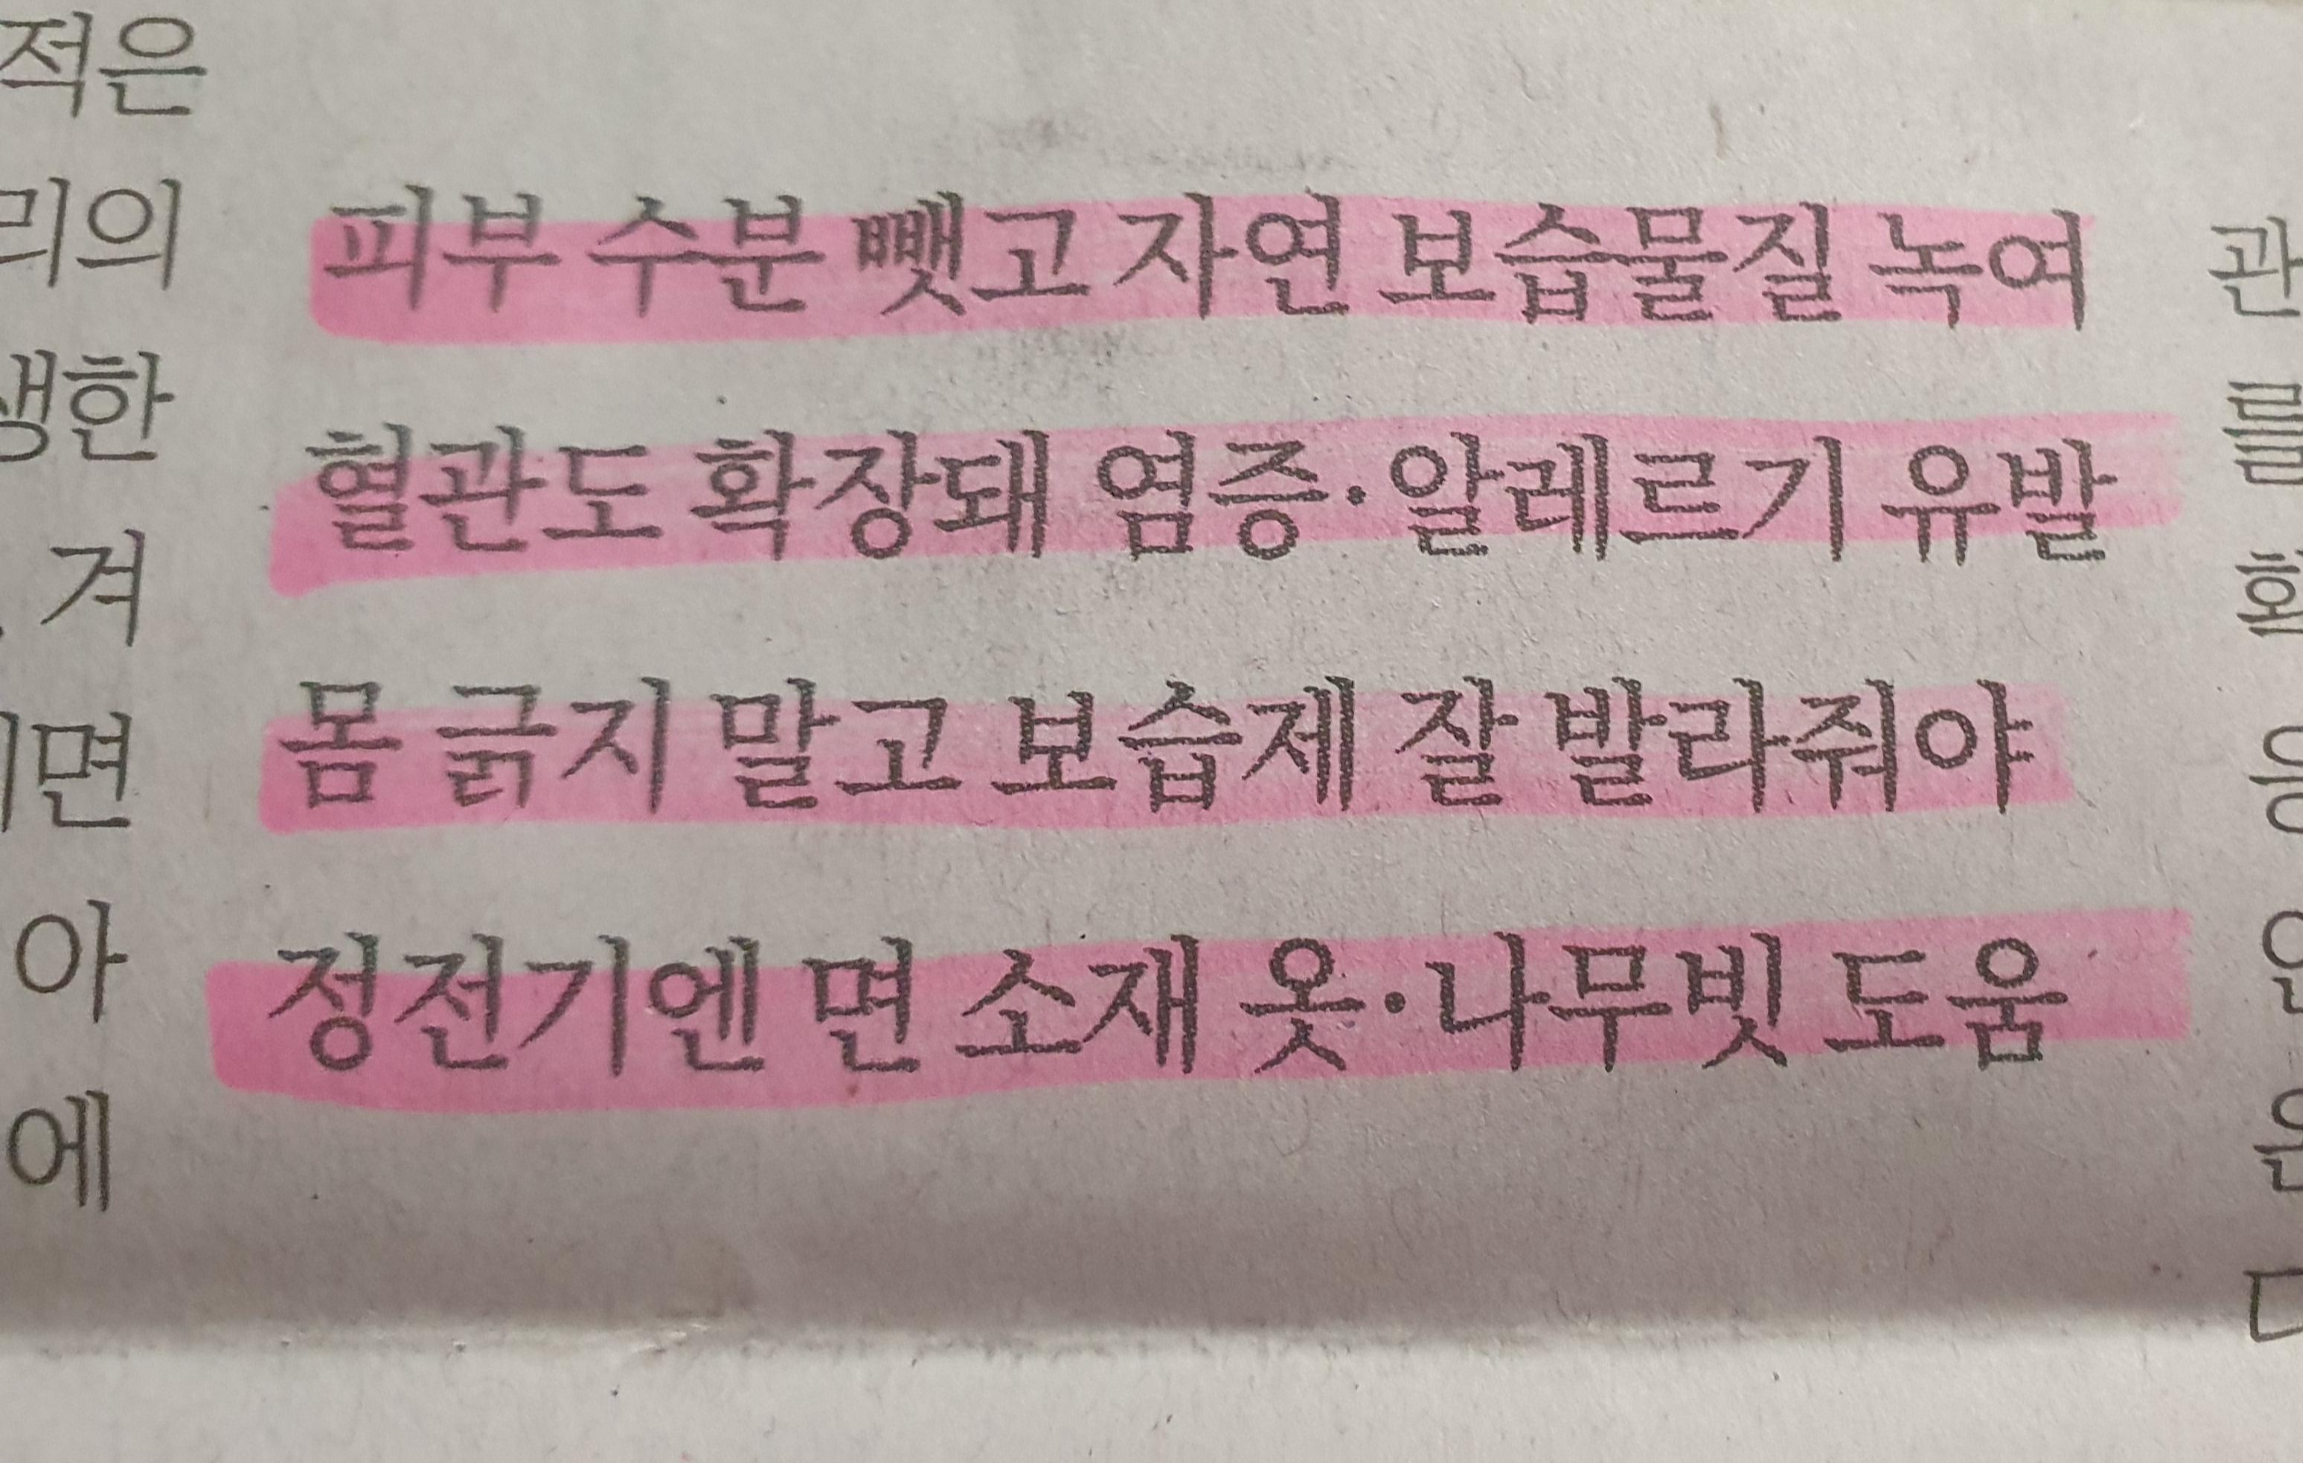 적은
리의
한
겨
면
아
에
피부 수분 뺏고 자연 보습물질 녹여
혈관도 확장돼 염증·알레르기 유발
몸 긁지 말고 보습제 잘 발라줘야
정전기엔 면 소재 옷·나무빗 도움
관